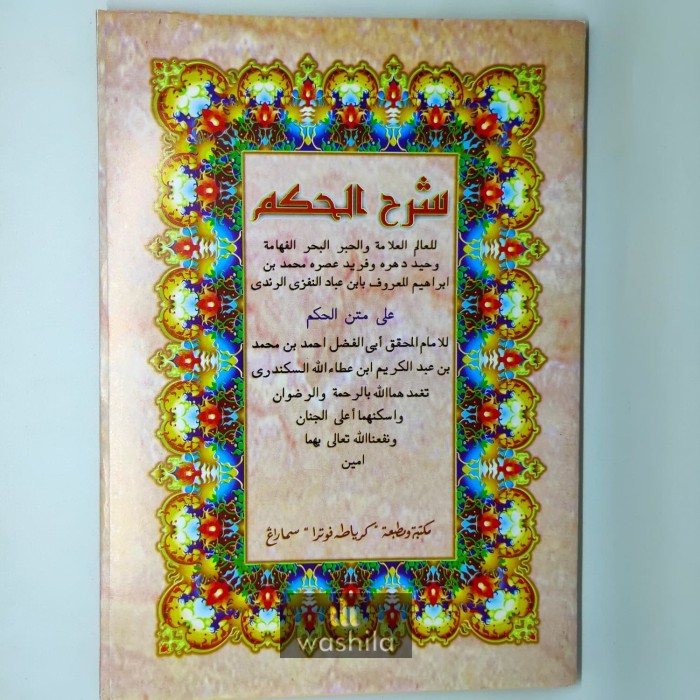 شرح الحكم
للعالم العلامة والحبر البحر الفهامة
وحيد دهره وفريد عصره محمد بن
ابراهيم المعروف بابن عباد النفزى الرندى
على متن الحكم
للامام المحقق أبى الفضل احمد بن محمد
بن عبد الكريم ابن عطاءالله السكندرى
تغمد هماالله بالرحمة والرضوان
واسكنهما أعلى الجنان
ونفعناالله تعالى بهما
امين
مكتبة ومطبعة "كرياطه فوترا" سماراڠ
washila